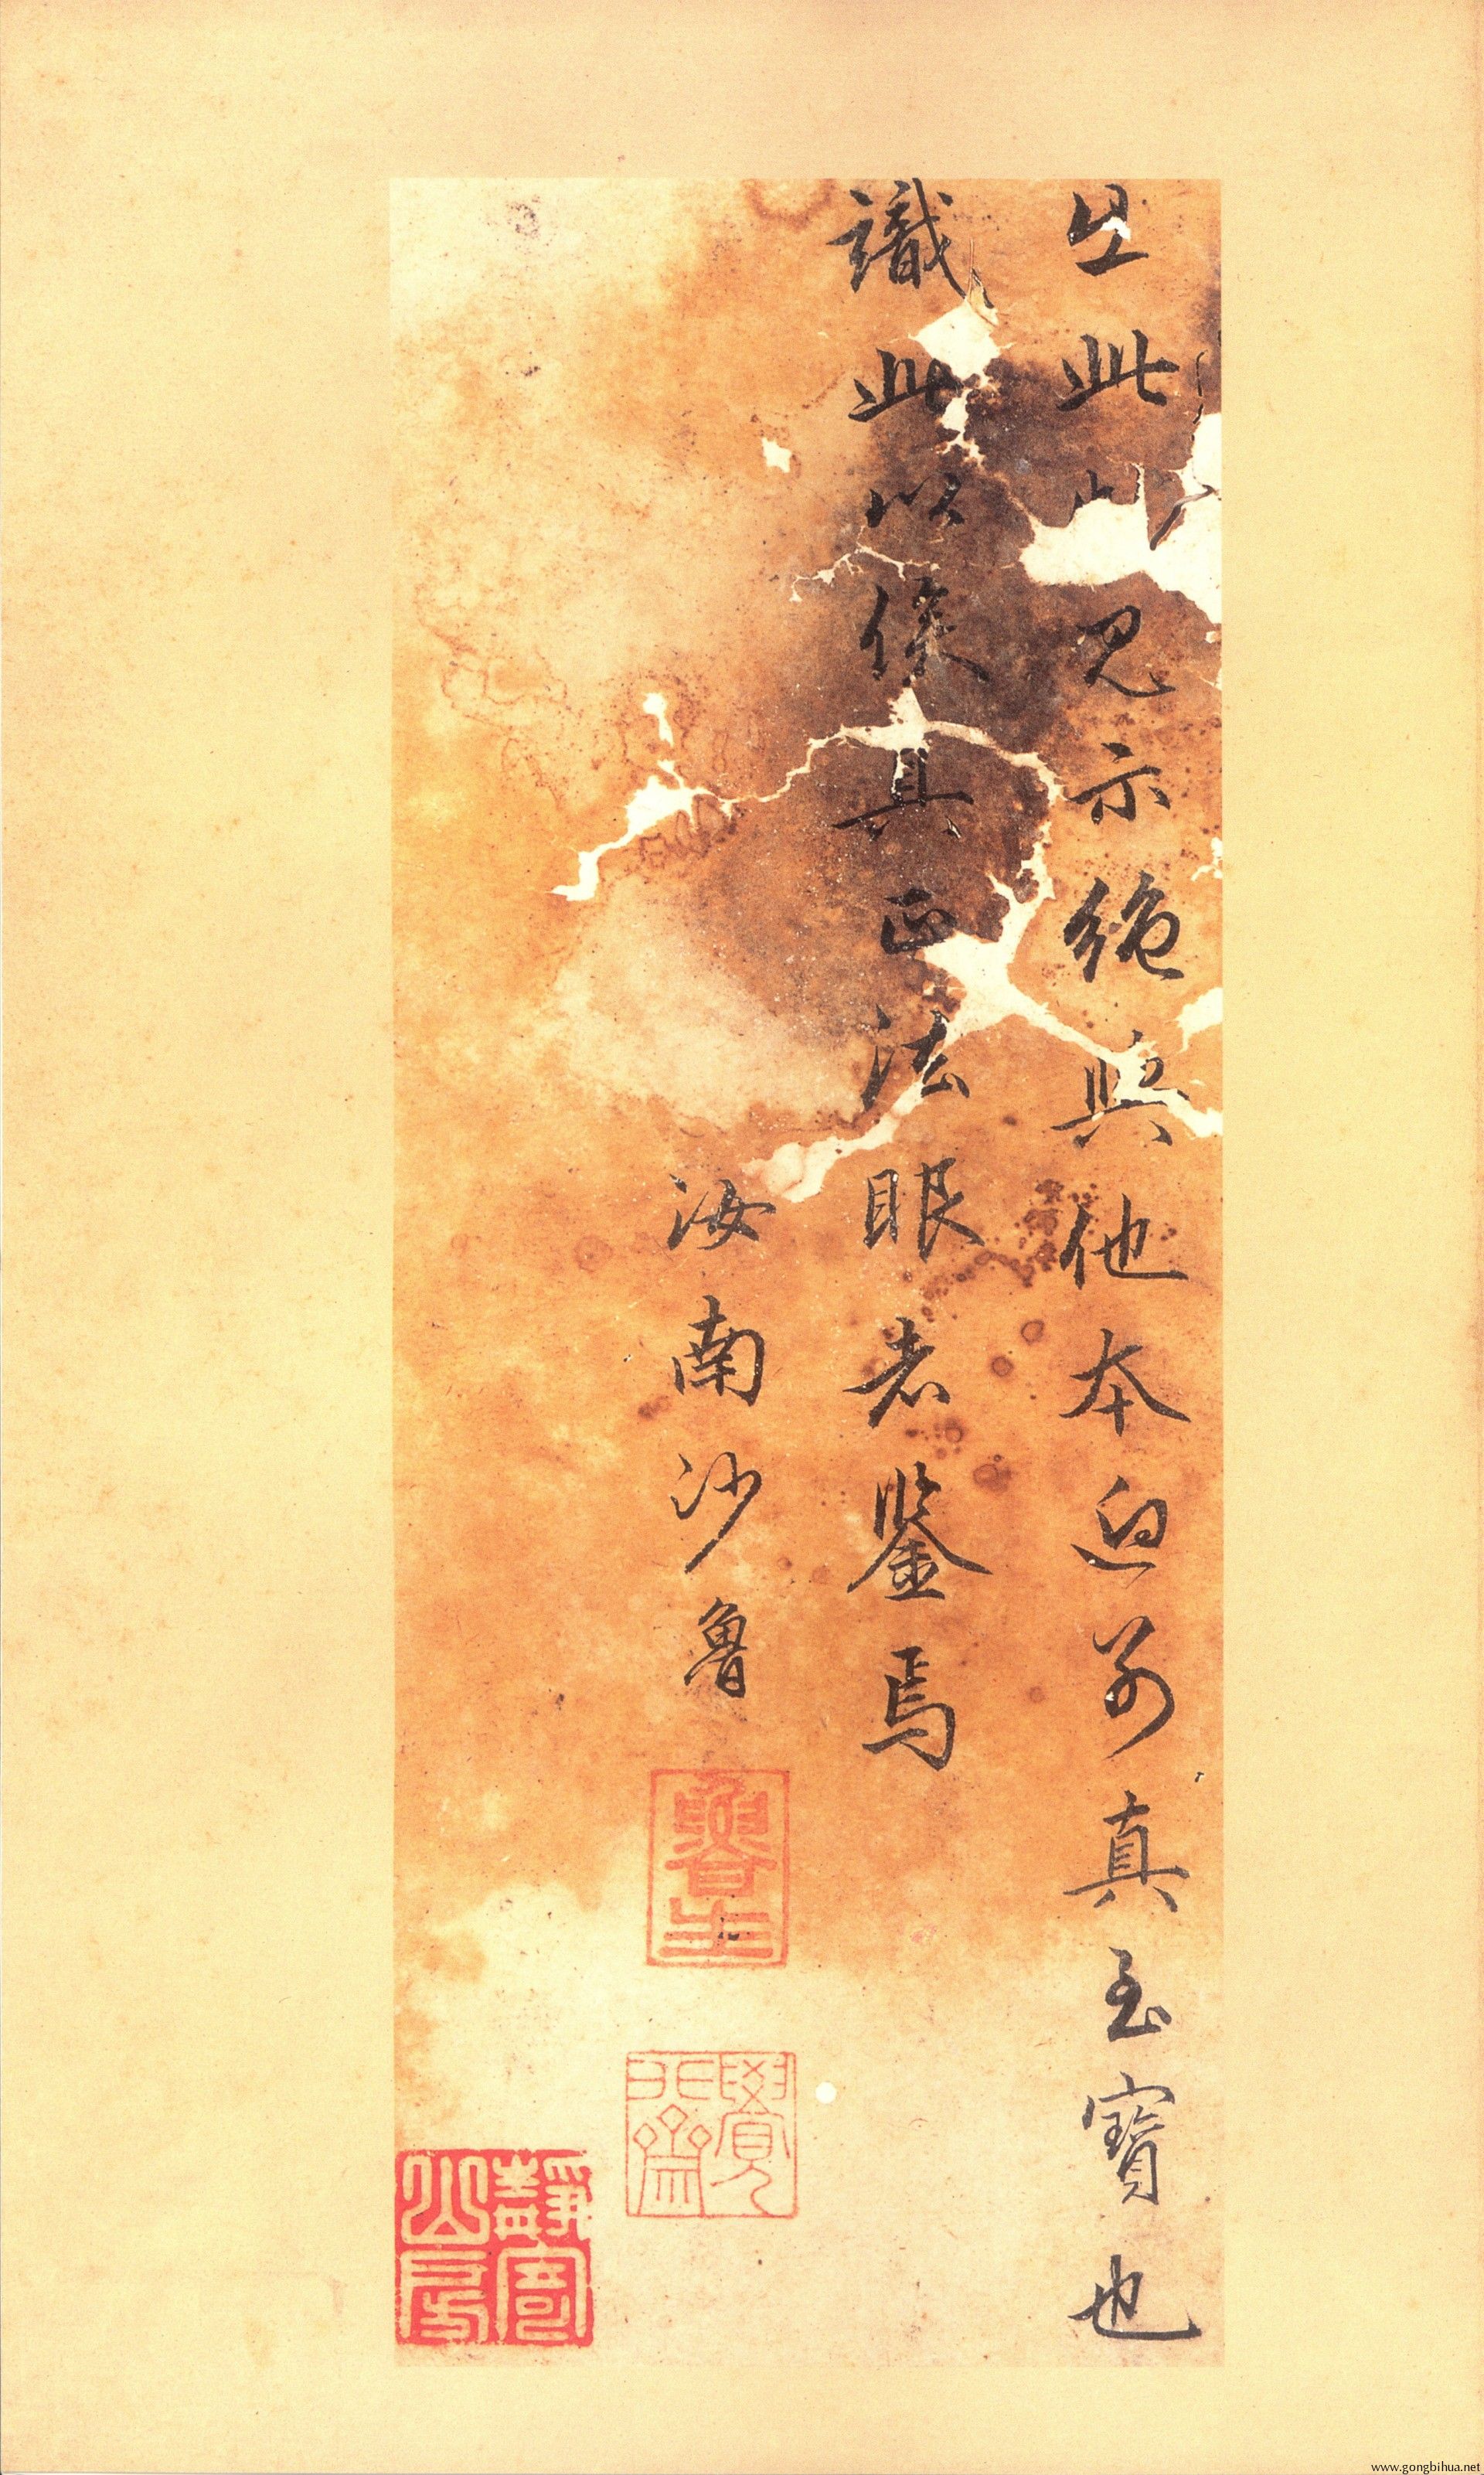 出此見示絶與他本迥別真至寶也
識此以俟具正法眼者鑒焉
汝南沙魯
魯生
覺非齋
靜寄山房
www.gongbihua.net